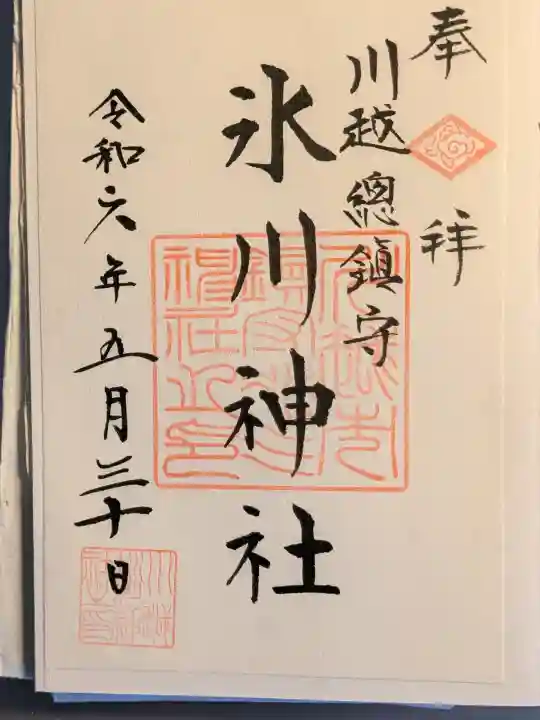 奉拝
川越總鎮守
氷川神社
令和六年五月三十日